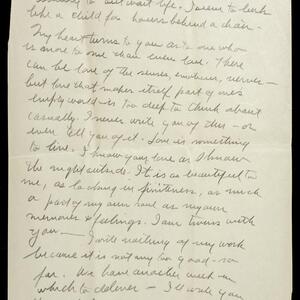 to outwait life. I seem to lurk
like a child for hours behind a chair.
My heart turns to you as to one who
is more to one than even love. There
can be love of the senses, emotions, nerves –
but love that makes itself part of one's
empty world is too deep to think about
casually. I never write you of this – or
even tell you of it. Love is something
to live. I know your love as I know
the night outside. It is as beautiful to
me, as lasting in finiteness, as much
a part of my own soul as my own
memories & feelings. I am twins with
you — I write nothing of my work
because it is not any too good – so
far. We have another week in
which to deliver – I'll write you